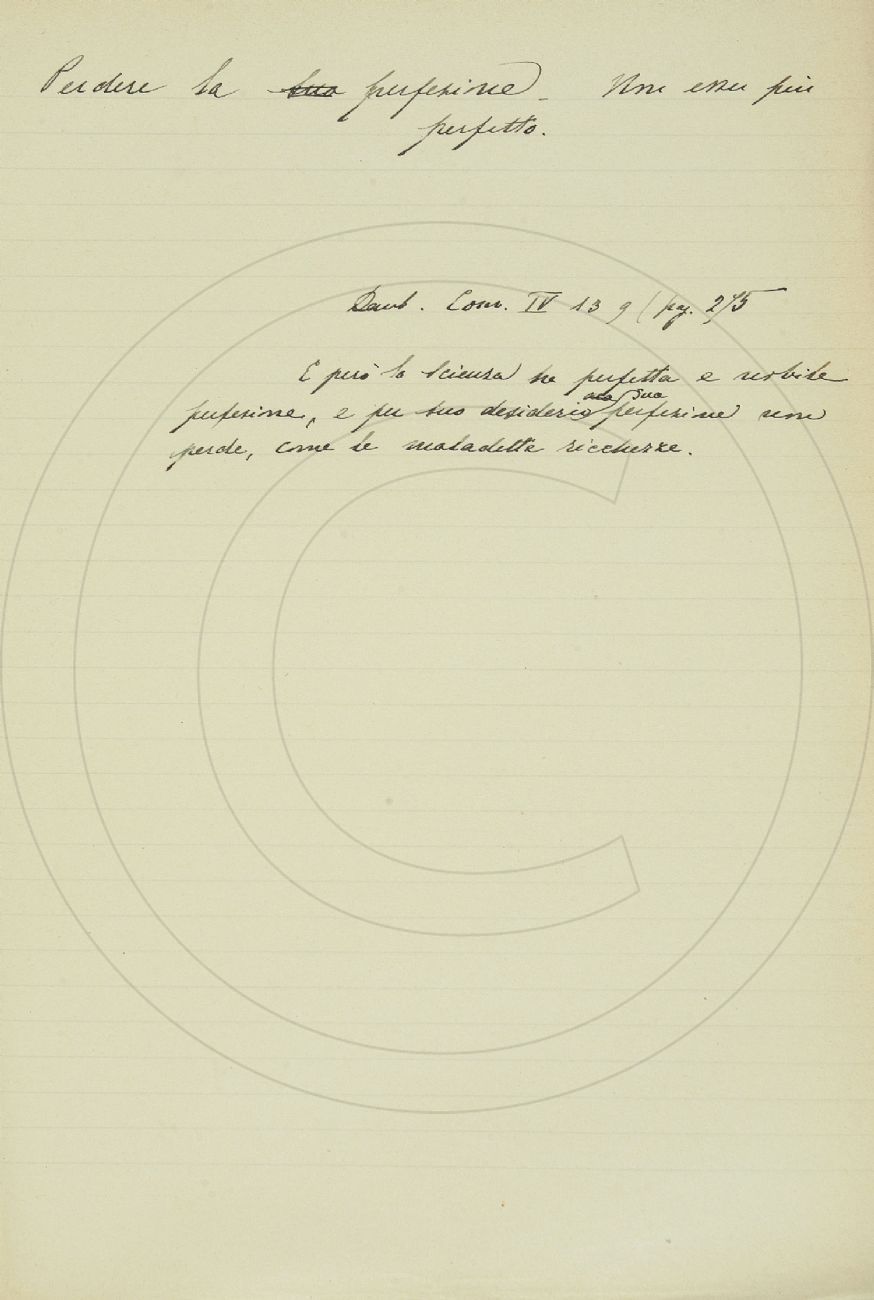 Perdere la sua perfezione_ Non esser più
perfetto.
Dant. Conv. IV 13 9 (pg. 275
E però la scienza ha perfetta e nobile
sua
perfezione, e per suo desiderio perfezione non
perde, come le maladette ricchezze.